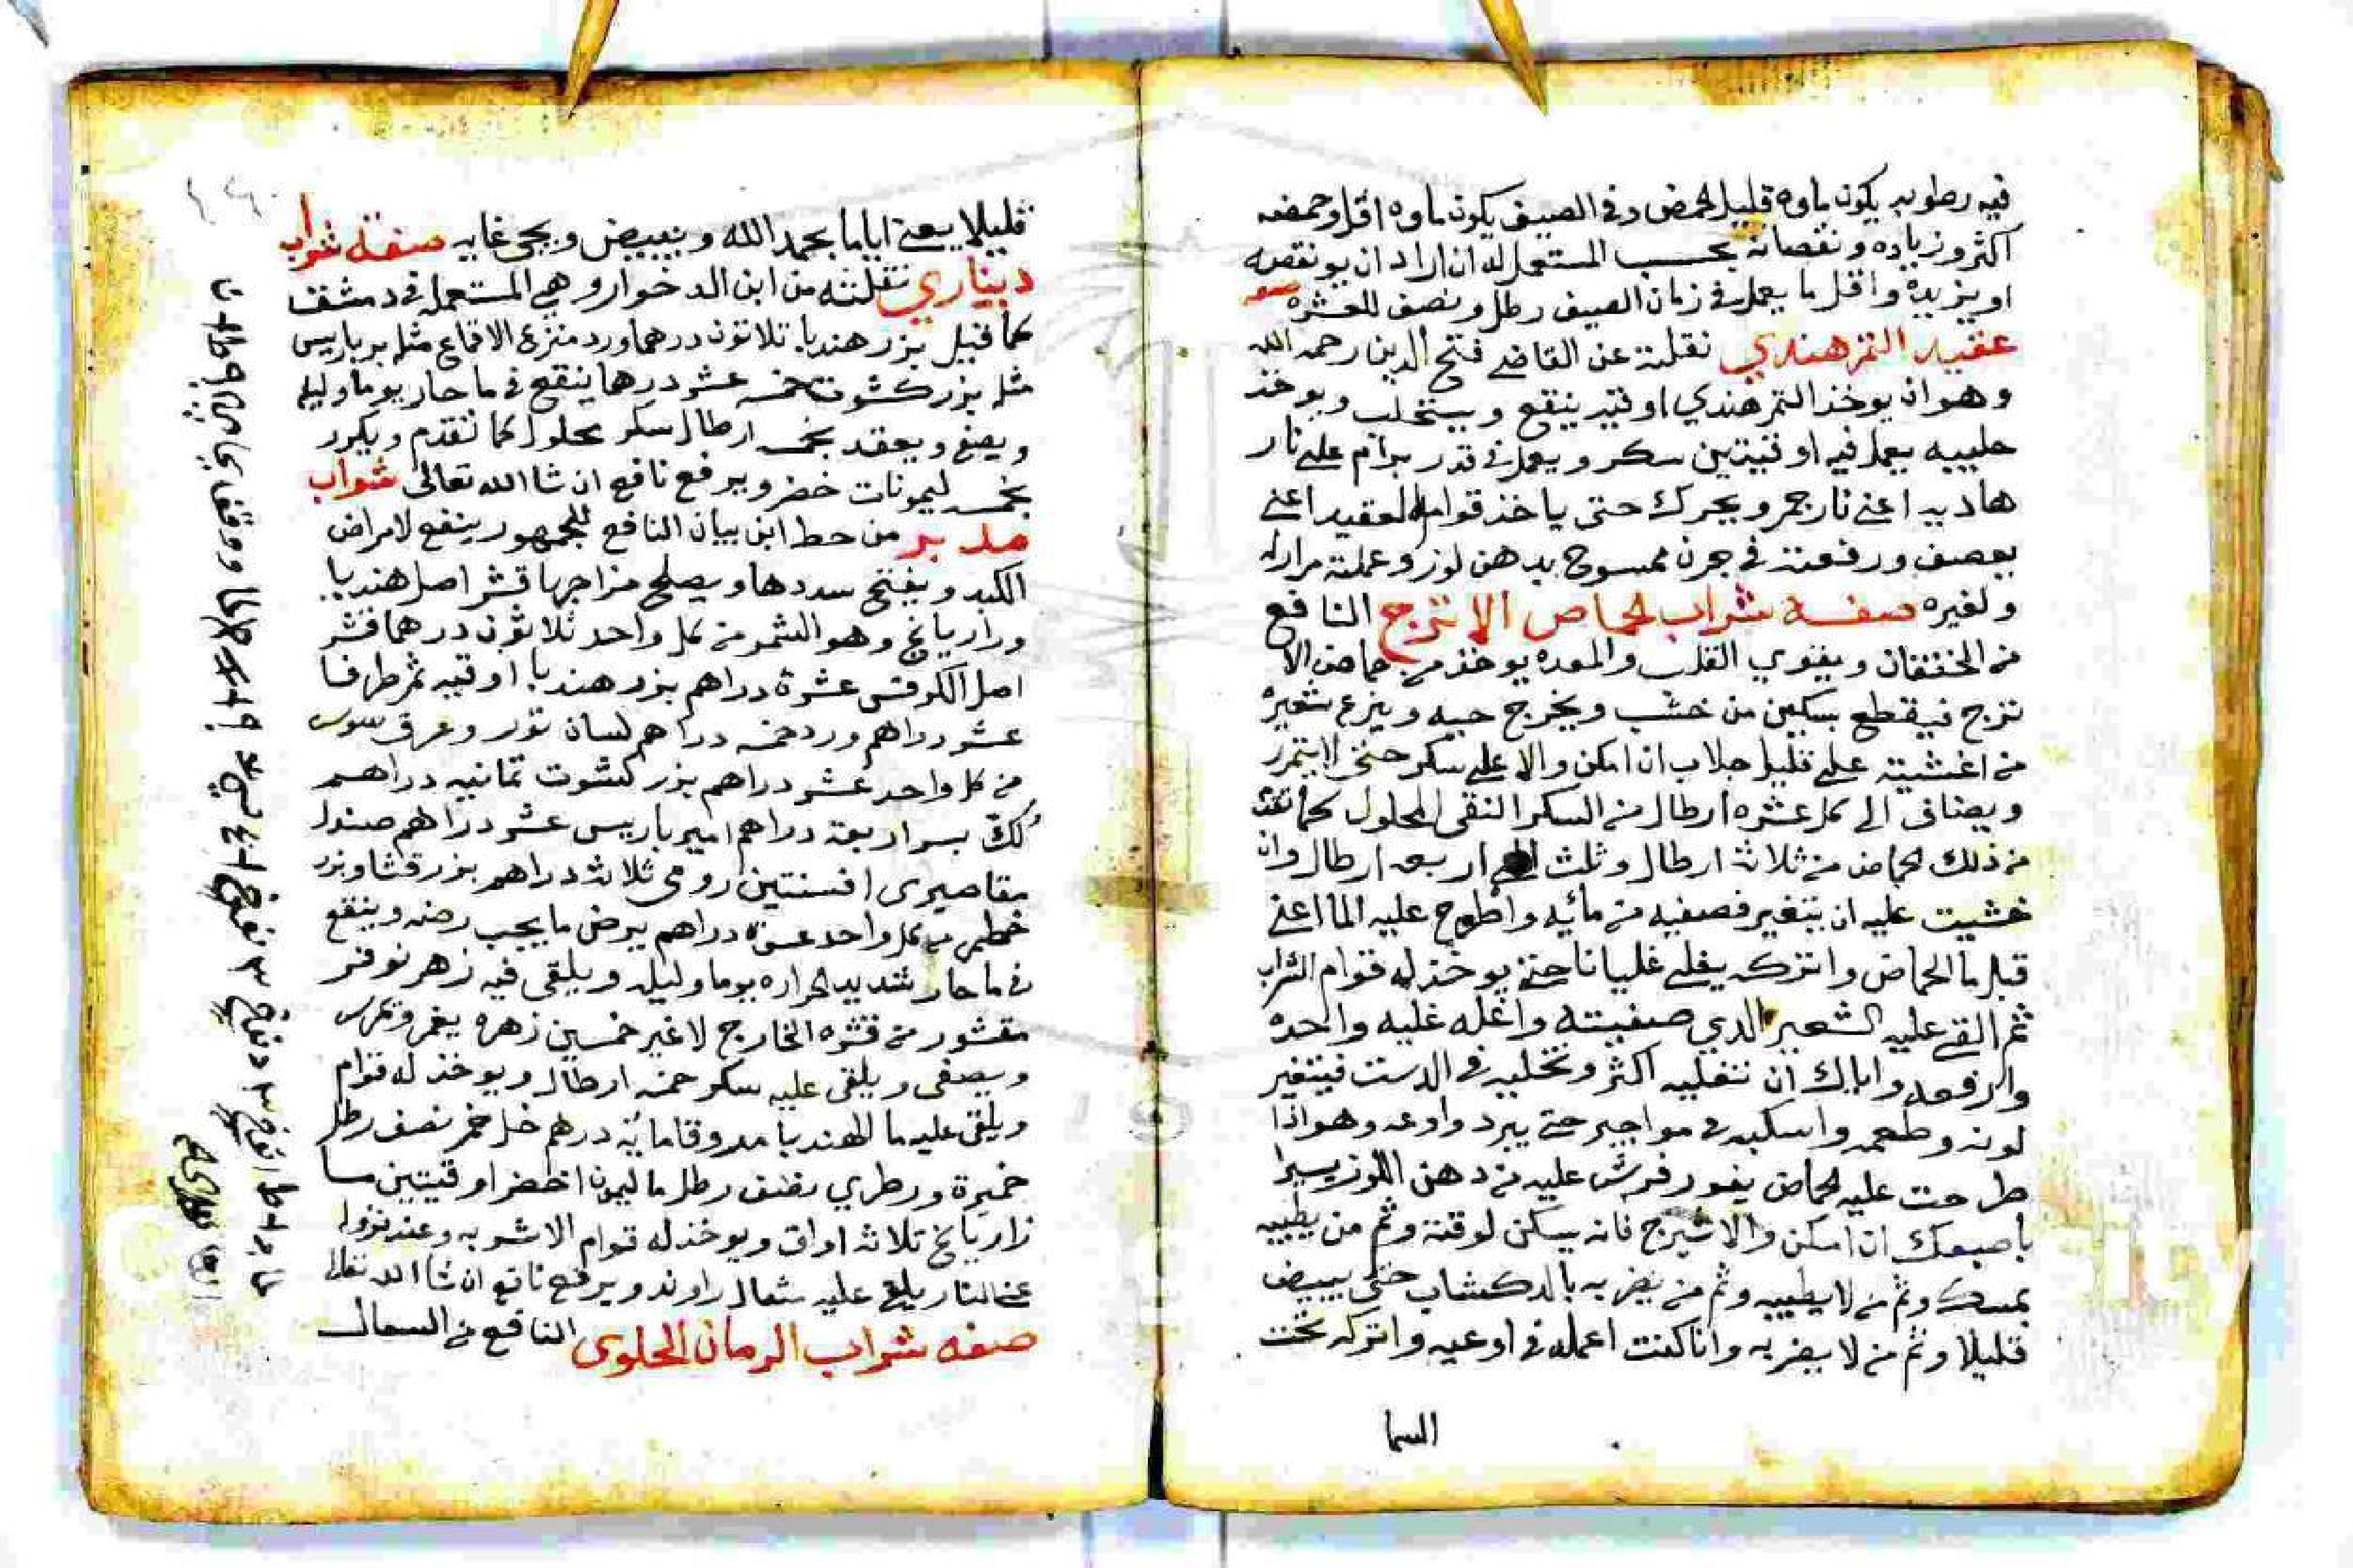 فيه رطوبه يكون ماوه قليل الحمض وفي الصيف يكون ماوه اقل وحمضه
اكثر وزياده ونقصانه بحسب المستعمل له ان اراد ان ينقصه
او يزيده واقل ما يعمل في زمان الصيف رطل ونصف للعشره صفه
عقيد التمر هندي نقلته عن القاضي فتح الدين رحمه الله
وهو ان يوخذ التمر هندي اوقيه ينقع ويستحلب ويوخذ
حليبه يعمل فيه اوقيتين سكر ويعمل في قدر برام على نار
هاديه اعني نار جمر ويحرك حتى ياخذ قوام العقيد اعني
بعصف ورفعته في جرن ممسوح بدهن لوز وعملته مرارا له
ولغيره صفه شراب الحماض الاترج النافع
من الخفقان ويقوي القلب والمعده يوخذ من حماض الا
ترج فيقطع بسكين من خشب ويخرج حبه وينزع شعيره
من اغشيته على قليل جلاب ان امكن والا على سكر حتى لا يتمرر
ويضاف الى كل عشره ارطال من السكر النقي المحلول كما تقدم
من ذلك الحماض من ثلاثة ارطال وثلث الى اربعه ارطال وان
خشيت عليه ان يتغير فصفيه من مائيه واطرح عليه الما اعني
قبل ما الحماض واتركه يغلي غليانا حتى يوخذ له قوام الشراب
ثم القي عليه الشعير الدي صفيته واغله غليه واحده
وارفعه واياك ان تغليه اكثر وتخليه في الدست فيتغير
لونه وطعمه واسكبه في مواجير حتى يبرد واوعه وهو اذا
طرحت عليه الحماض يفور فرش عليه من دهن اللوز يسيرا
باصبعك ان امكن والا شيرج فانه يسكن لوقته وثم من يطيبه
بمسك وثم من لا يطيبه وثم من يضربه بالدكشاب حتى يبيض
قليلا وثم من لا يضربه وانا كنت اعمله في اوعيه واتركه تحت
السما
قليلا يعني اياما بحمد الله ويبيض ويجي غايه صفة شراب
ديناري نقلته من ابن الدخوار وهي المستعمله في دمشق
كما قيل بزر هندبا ثلاثون درهما ورد منزوع الاقماع مثله برباريس
مثله بزر كشوت خمسه عشر درهما ينقع في ما حار يوما وليله
ويصفى ويعقد بخمسه ارطال سكر محلول كما تقدم ويكرر
بخمسه ليمونات خضر ويرفع نافع ان شا الله تعالى شراب
مدبر من خط ابن بيان النافع للجمهور ينفع لامراض
الكبد ويفتح سددها ويصلح مزاجها قشر اصل هندبا
ورازيانج وهو الشمر من كل واحد ثلاثون درهما قشر
اصل الكرفس عشرة دراهم بزر هندبا اوقيه ثمر طرفا
عشر دراهم ورد خمسه دراهم لسان ثور وعرق سوس
من كل واحد عشر دراهم بزر كشوت ثمانيه دراهم
لك بسر اربعة دراهم اميرباريس عشر دراهم صندل
مقاصيري افسنتين رومي ثلاث دراهم بزر قثا وبزر
خطمي من كل واحد عشرة دراهم يرض ما يجب رضه وينقع
في ما حار شديد الحراره يوما وليله ويلقى فيه زهر نوفر
مقشور من قشره الخارج لا غير خمسين زهره يغمر ويمرس
ويصفى ويلقى عليه سكر خمسه ارطال ويوخذ له قوام
ويلقى عليه ما الهندبا مدوقا ماية درهم خل خمر نصف رطل
خميرة ورد طري نصف رطل ما ليمون اخضر اوقيتين ما
رازيانج ثلاثه اواق ويوخذ له قوام الاشربه وعند نزوله
عن النار يلقى عليه مثقال راوند ويرفع نافع ان شا الله تعالى
صفه شراب الرمان الحلوى النافع من السعال